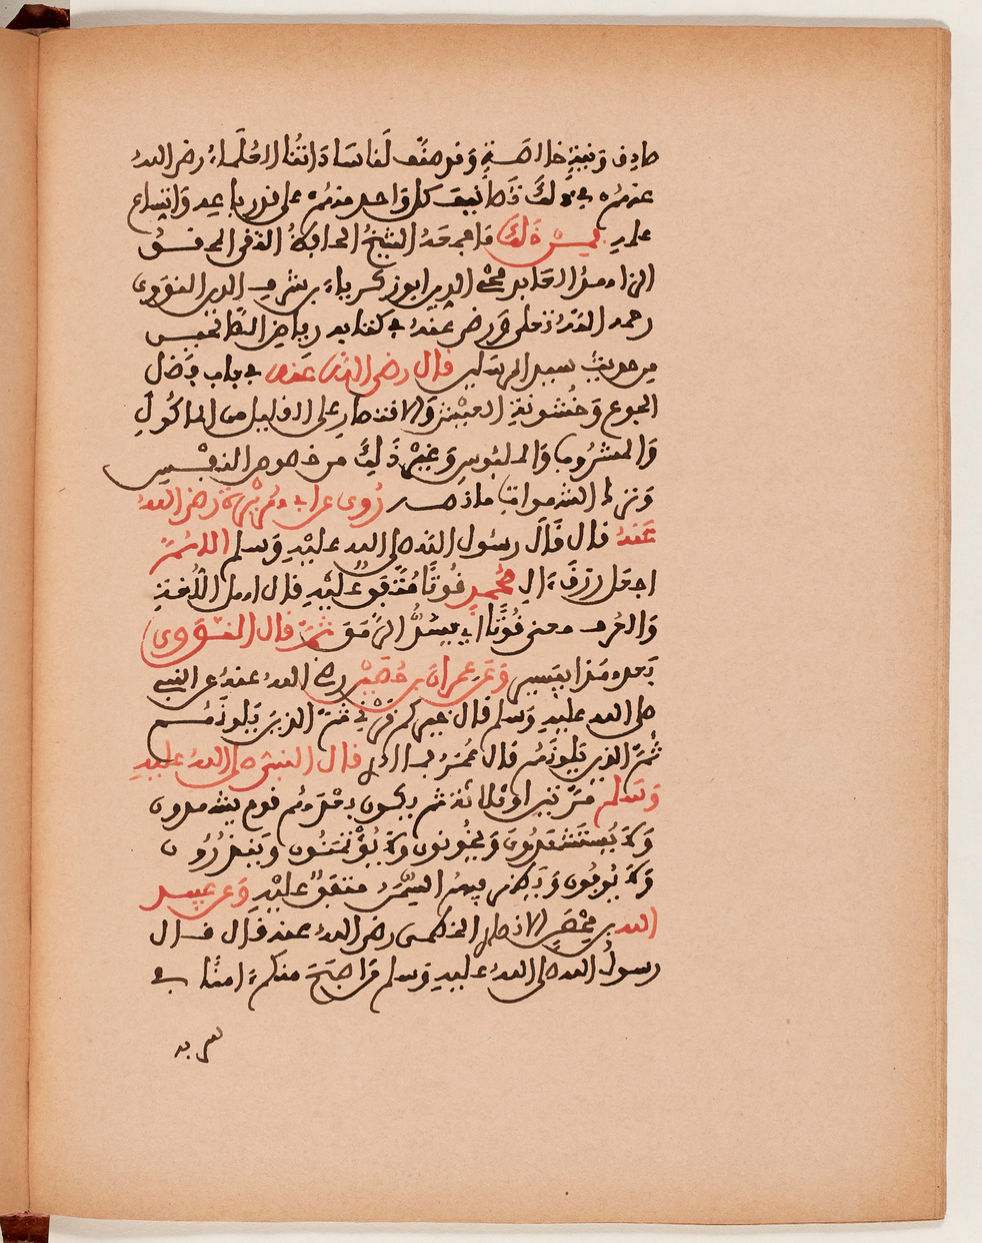 صادق ونية خالصة وقد صنف لنا ساداتنا العلماء رضي الله
عنهم في ذلك تصانيف كل واحد منهم على قدر باعه واتساع
علمه فمن ذلك ما جمعه الشيخ الحافظ التقي المحقق
الزاهد العابد محي الدين ابو زكرياء بن شرف الدين النووي
رحمه الله تعلى ورضي عنه في كتابه رياض الصالحين
من حديث سيد المرسلين قال رضي الله عنه في باب فضل
الجوع وخشونة العيش والاقتصار على القليل من الماكول
والمشروب والملبوس وغير ذلك من حظوظ النفس
وترك الشهوات ما نصه روى عن ابي هريرة رضي الله
عنه قال قال رسول الله صلى الله عليه وسلم اللهم
اجعل رزق ءال محمد قوتا متفق عليه قال اهل اللغة
والغريب معنى قوتا اي يسد الرمق ثم قال النووي
بعد هذا بيسير وعن عمران بن حصين رضي الله عنه عن النبي
صلى الله عليه وسلم قال خيركم قرني ثم الذين يلونهم
ثم الذين يلونهم قال عمران فما ادري قال النبي صلى الله عليه
وسلم مرتين او ثلاثة ثم يكون بعدهم قوم يشهدون
ولا يستشهدون ويخونون ولا يؤتمنون وينذرون
ولا يوفون ويظهر فيهم السمن متفق عليه وعن عبيد
الله بن محصن الانصاري الخطمي رضي الله عنه قال قال
رسول الله صلى الله عليه وسلم من اصبح منكم ءامنا في
سربه